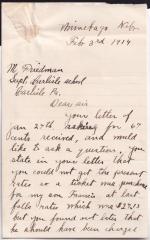 Winnebago Neb
Feb 3rd 1914
M. Friedman
Supt. Carlisle school
Carlisle Pa.
Dear sir
your letter of
an 27th asking for 67
cents received, and would
like to ask a question, you
state in your letter that
you could not get the present
rates so a ticket was purchase
for my son Francis at least
folks rates which was $27.13
but you found out later that
he should have been charged